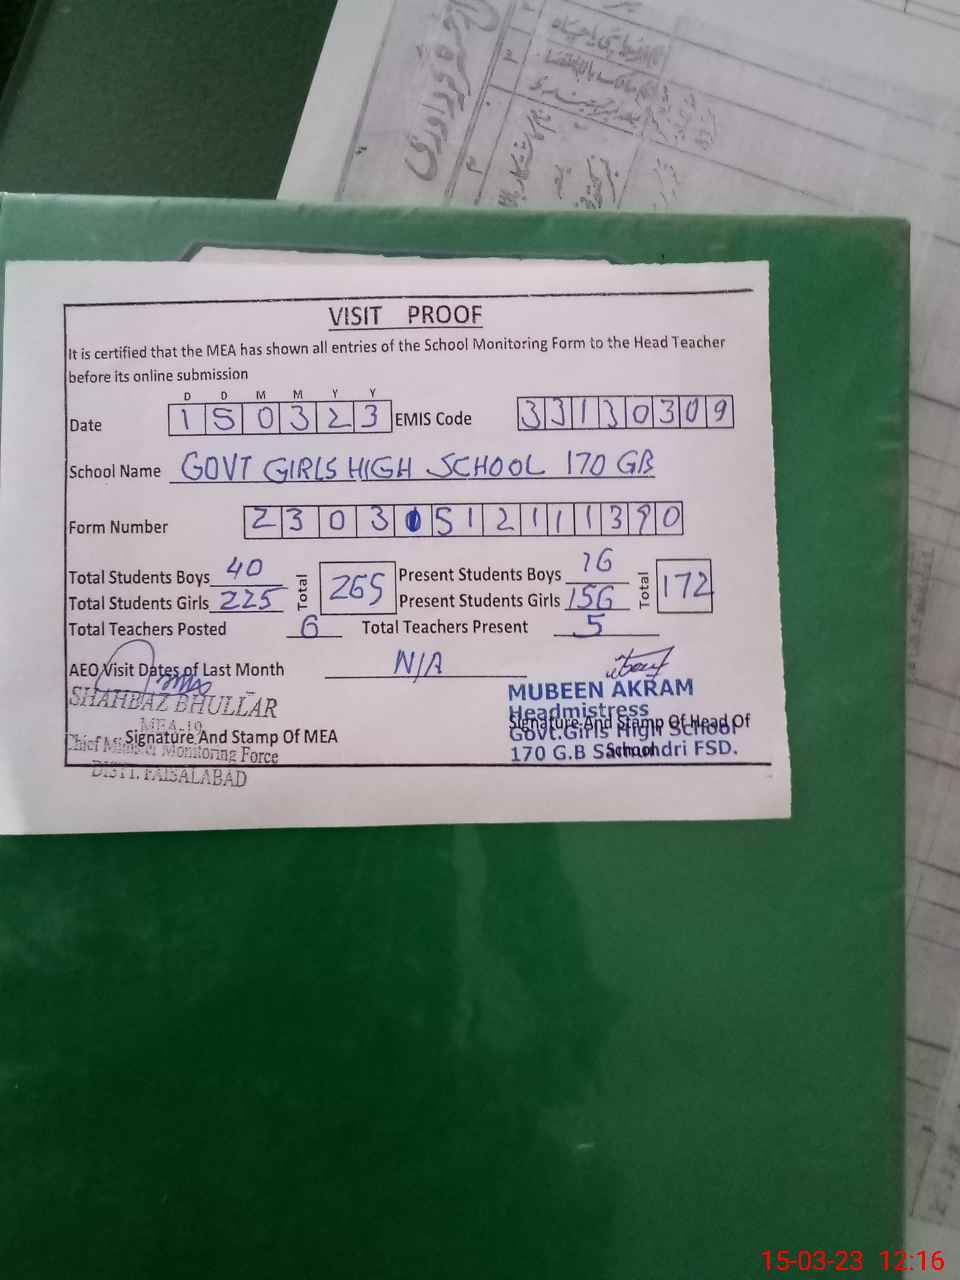 VISIT PROOF
It is certified that the MEA has shown all entries of the School Monitoring Form to the Head Teacher
before its online submission
D D M M Y Y
Date 1 5 0 3 2 3 EMIS Code 3 3 1 3 0 3 0 9
School Name GOVT GIRLS HIGH SCHOOL 170 GB
Form Number 2 3 0 3 0 5 1 2 1 1 1 3 9 0
Total Students Boys 40 Total 265 Present Students Boys 16 Total 172
Total Students Girls 225 Present Students Girls 156
Total Teachers Posted 6 Total Teachers Present 5
AEO Visit Dates of Last Month N/A
SHAHBAZ BHULLAR
MEA-19
Signature And Stamp Of MEA
Chief Minister Monitoring Force
DISTT. FAISALABAD
MUBEEN AKRAM
Headmistress
Signature And Stamp Of Head Of
Govt.Girls High School
School
170 G.B Samundri FSD.
15-03-23 12:16